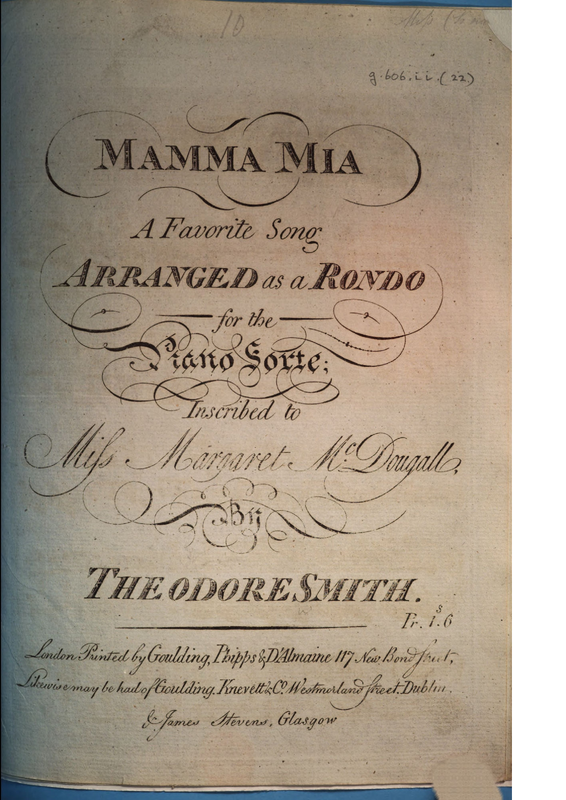 10
Miss
g.606.ii.(22)
MAMMA MIA
A Favorite Song
ARRANGED as a RONDO
for the
Piano Forte;
Inscribed to
Miſs Margaret Mc. Dougall,
By
THEODORE SMITH.
Pr. 1s.6
London Printed by Goulding, Phipps & D'Almaine 117 New Bond Street,
Likewise may be had of Goulding, Knevett & Co. Westmorland Street, Dublin,
& James Stevens, Glasgow